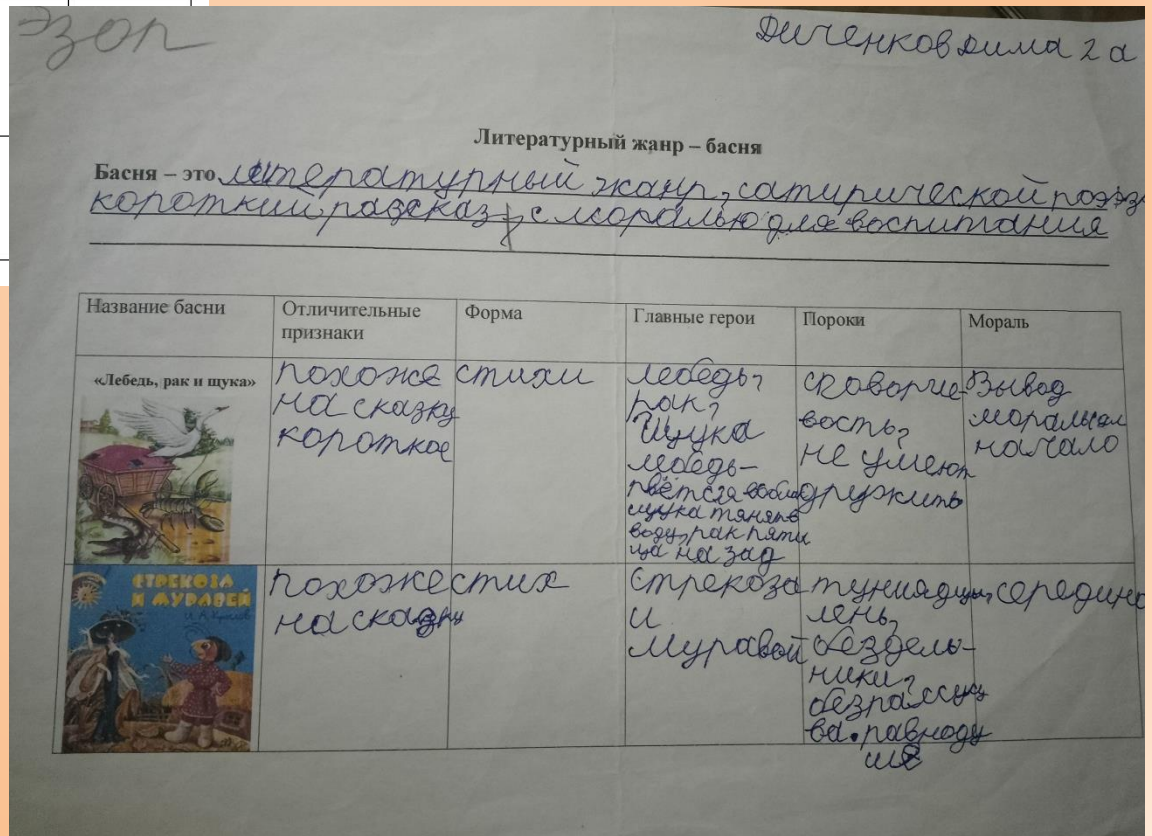 Эзоп
Диченков Дима 2 а
Литературный жанр – басня
Басня – это литературный жанр, сатирической поэз
короткий рассказ, с моралью для воспитания
Название басни
Отличительные
признаки
Форма
Главные герои
Пороки
Мораль
«Лебедь, рак и щука»
похоже
на сказку
короткое
стихи
лебедь,
рак,
Щука
лебедь–
рвётся
щука тянет в
воду, рак пяти
ца назад
сговорче-
вость,
не умеют
дружить
Вывод
мораль
начало
СТРЕКОЗА
И МУРАВЕЙ
И. А. Крылов
похоже
на сказку
стих
Стрекоза
и
Муравей
туниядцы,
лень,
бездель-
ники,
ва. равноду
шие
середина